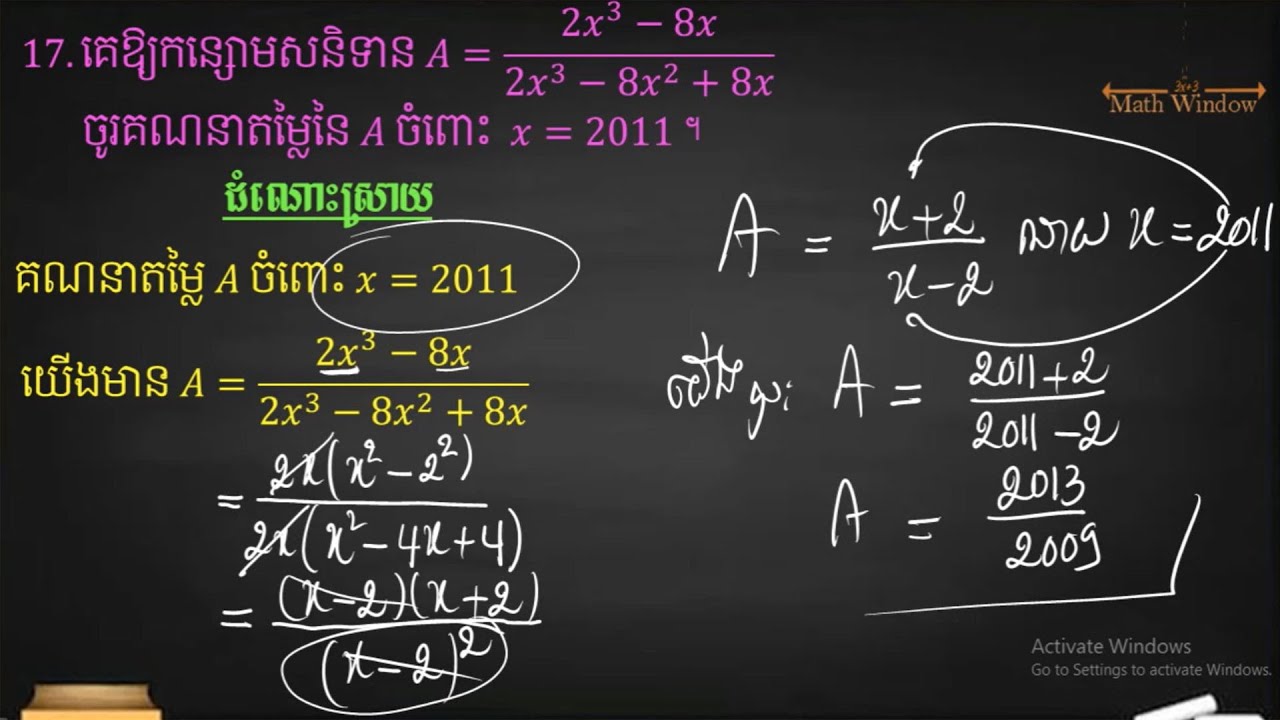 17. គេឱ្យកន្សោមសនិទាន A = (2x³ − 8x)/(2x³ − 8x² + 8x)
ចូរគណនាតម្លៃនៃ A ចំពោះ x = 2011 ។
ដំណោះស្រាយ
គណនាតម្លៃ A ចំពោះ x = 2011
យើងមាន A = (2x³ − 8x)/(2x³ − 8x² + 8x)
= 2x(x² − 2²)/2x(x² − 4x + 4)
= (x−2)(x+2)/(x−2)²
3x+3
Math Window
A = (x+2)/(x−2) ដោយ x = 2011
ដូចនេះ A = (2011+2)/(2011−2)
A = 2013/2009
Activate Windows
Go to Settings to activate Windows.